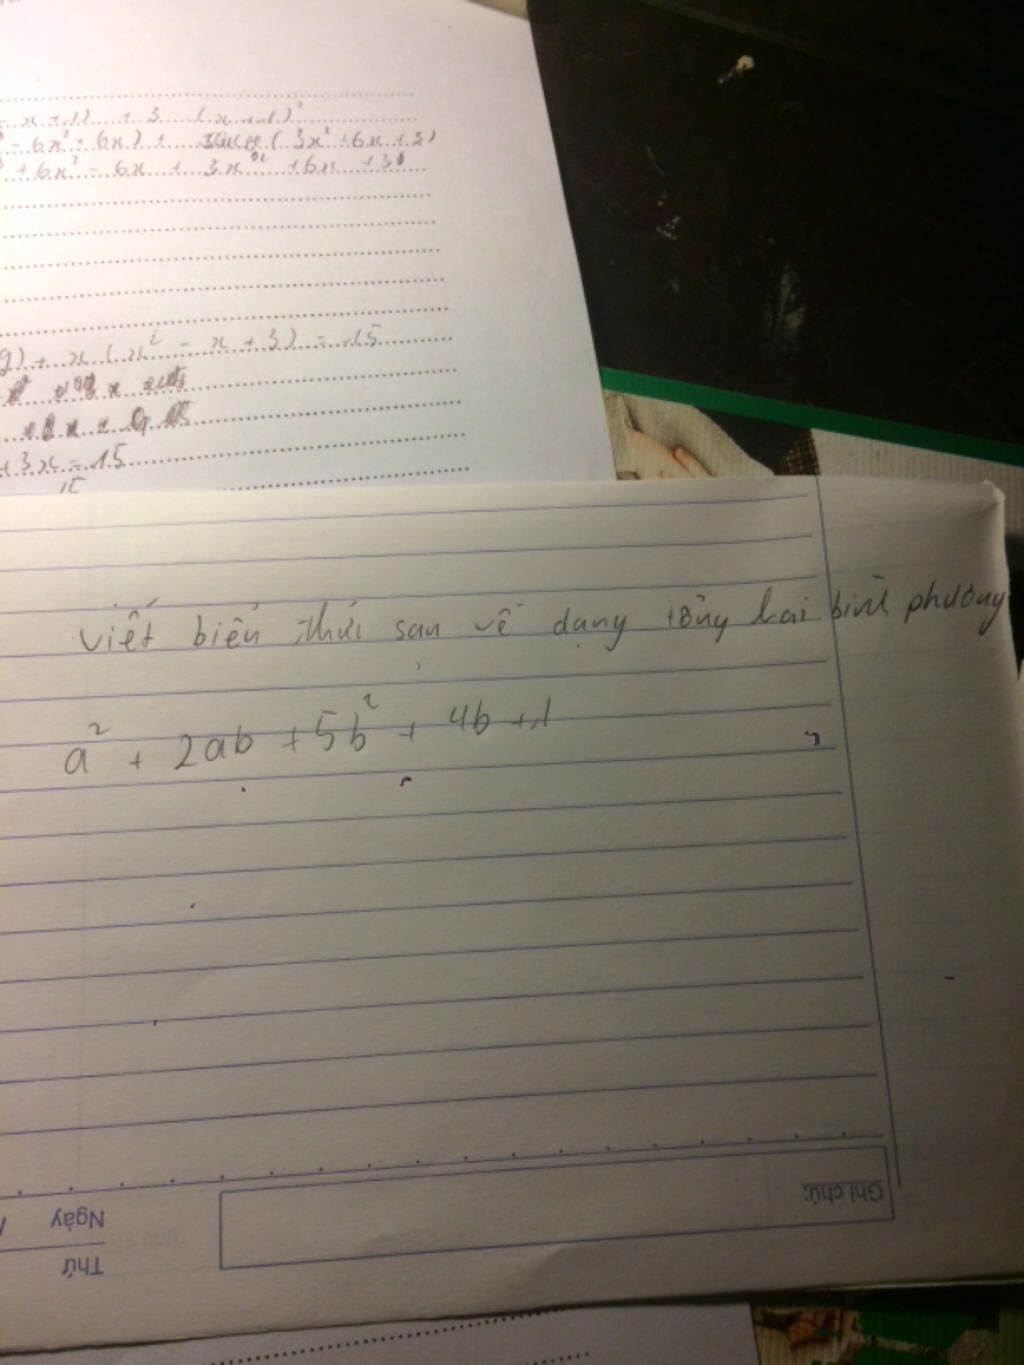 - x + 1) + 3 (x + 1)²
- 6x² + 6x) + (3x² + 6x + 3)
+ 6x² - 6x + 3x² + 6x + 3
) + x (x² - x + 3) = 15
+ 3x = 15
15
viết biểu thức sau về dạng tổng hai bình phương
a² + 2ab + 5b² + 4b + 1
Ghi chú:
Ngày
Thứ